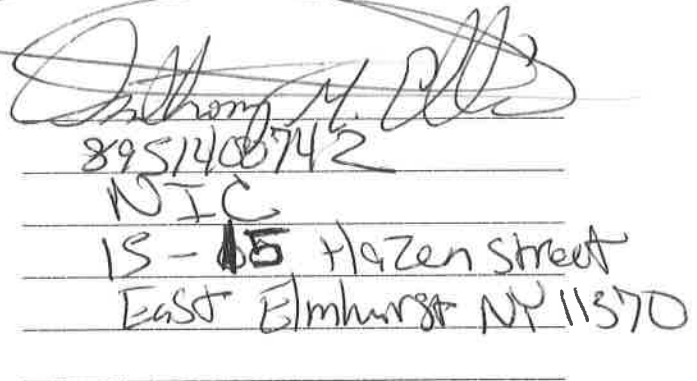 Anthony M. Ellis
8951400742
NIC
15-15 Hazen Street
East Elmhurst NY 11370